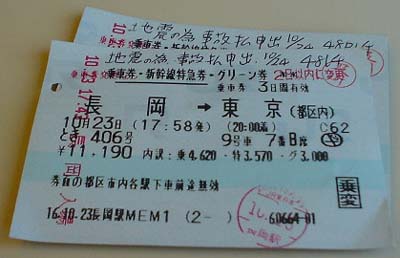 地震の為 事故払申出 10/24 48014
地震の為 事故払申出 10/24 4814
乗車券・新幹線特急券・グリーン券
2日以内に変更
乗車券 3日間有効
長岡 → 東京 (都区内)
10月23日 (17:58発) (20:00着) C62
とき 406号 9号車 7番B席
¥11,190 内訳:乗4,620・特3,570・グ3,000
券面の都区市内各駅下車前途無効
乗変
16.10.23長岡駅MEM1 (2-) 60664-01
長岡駅